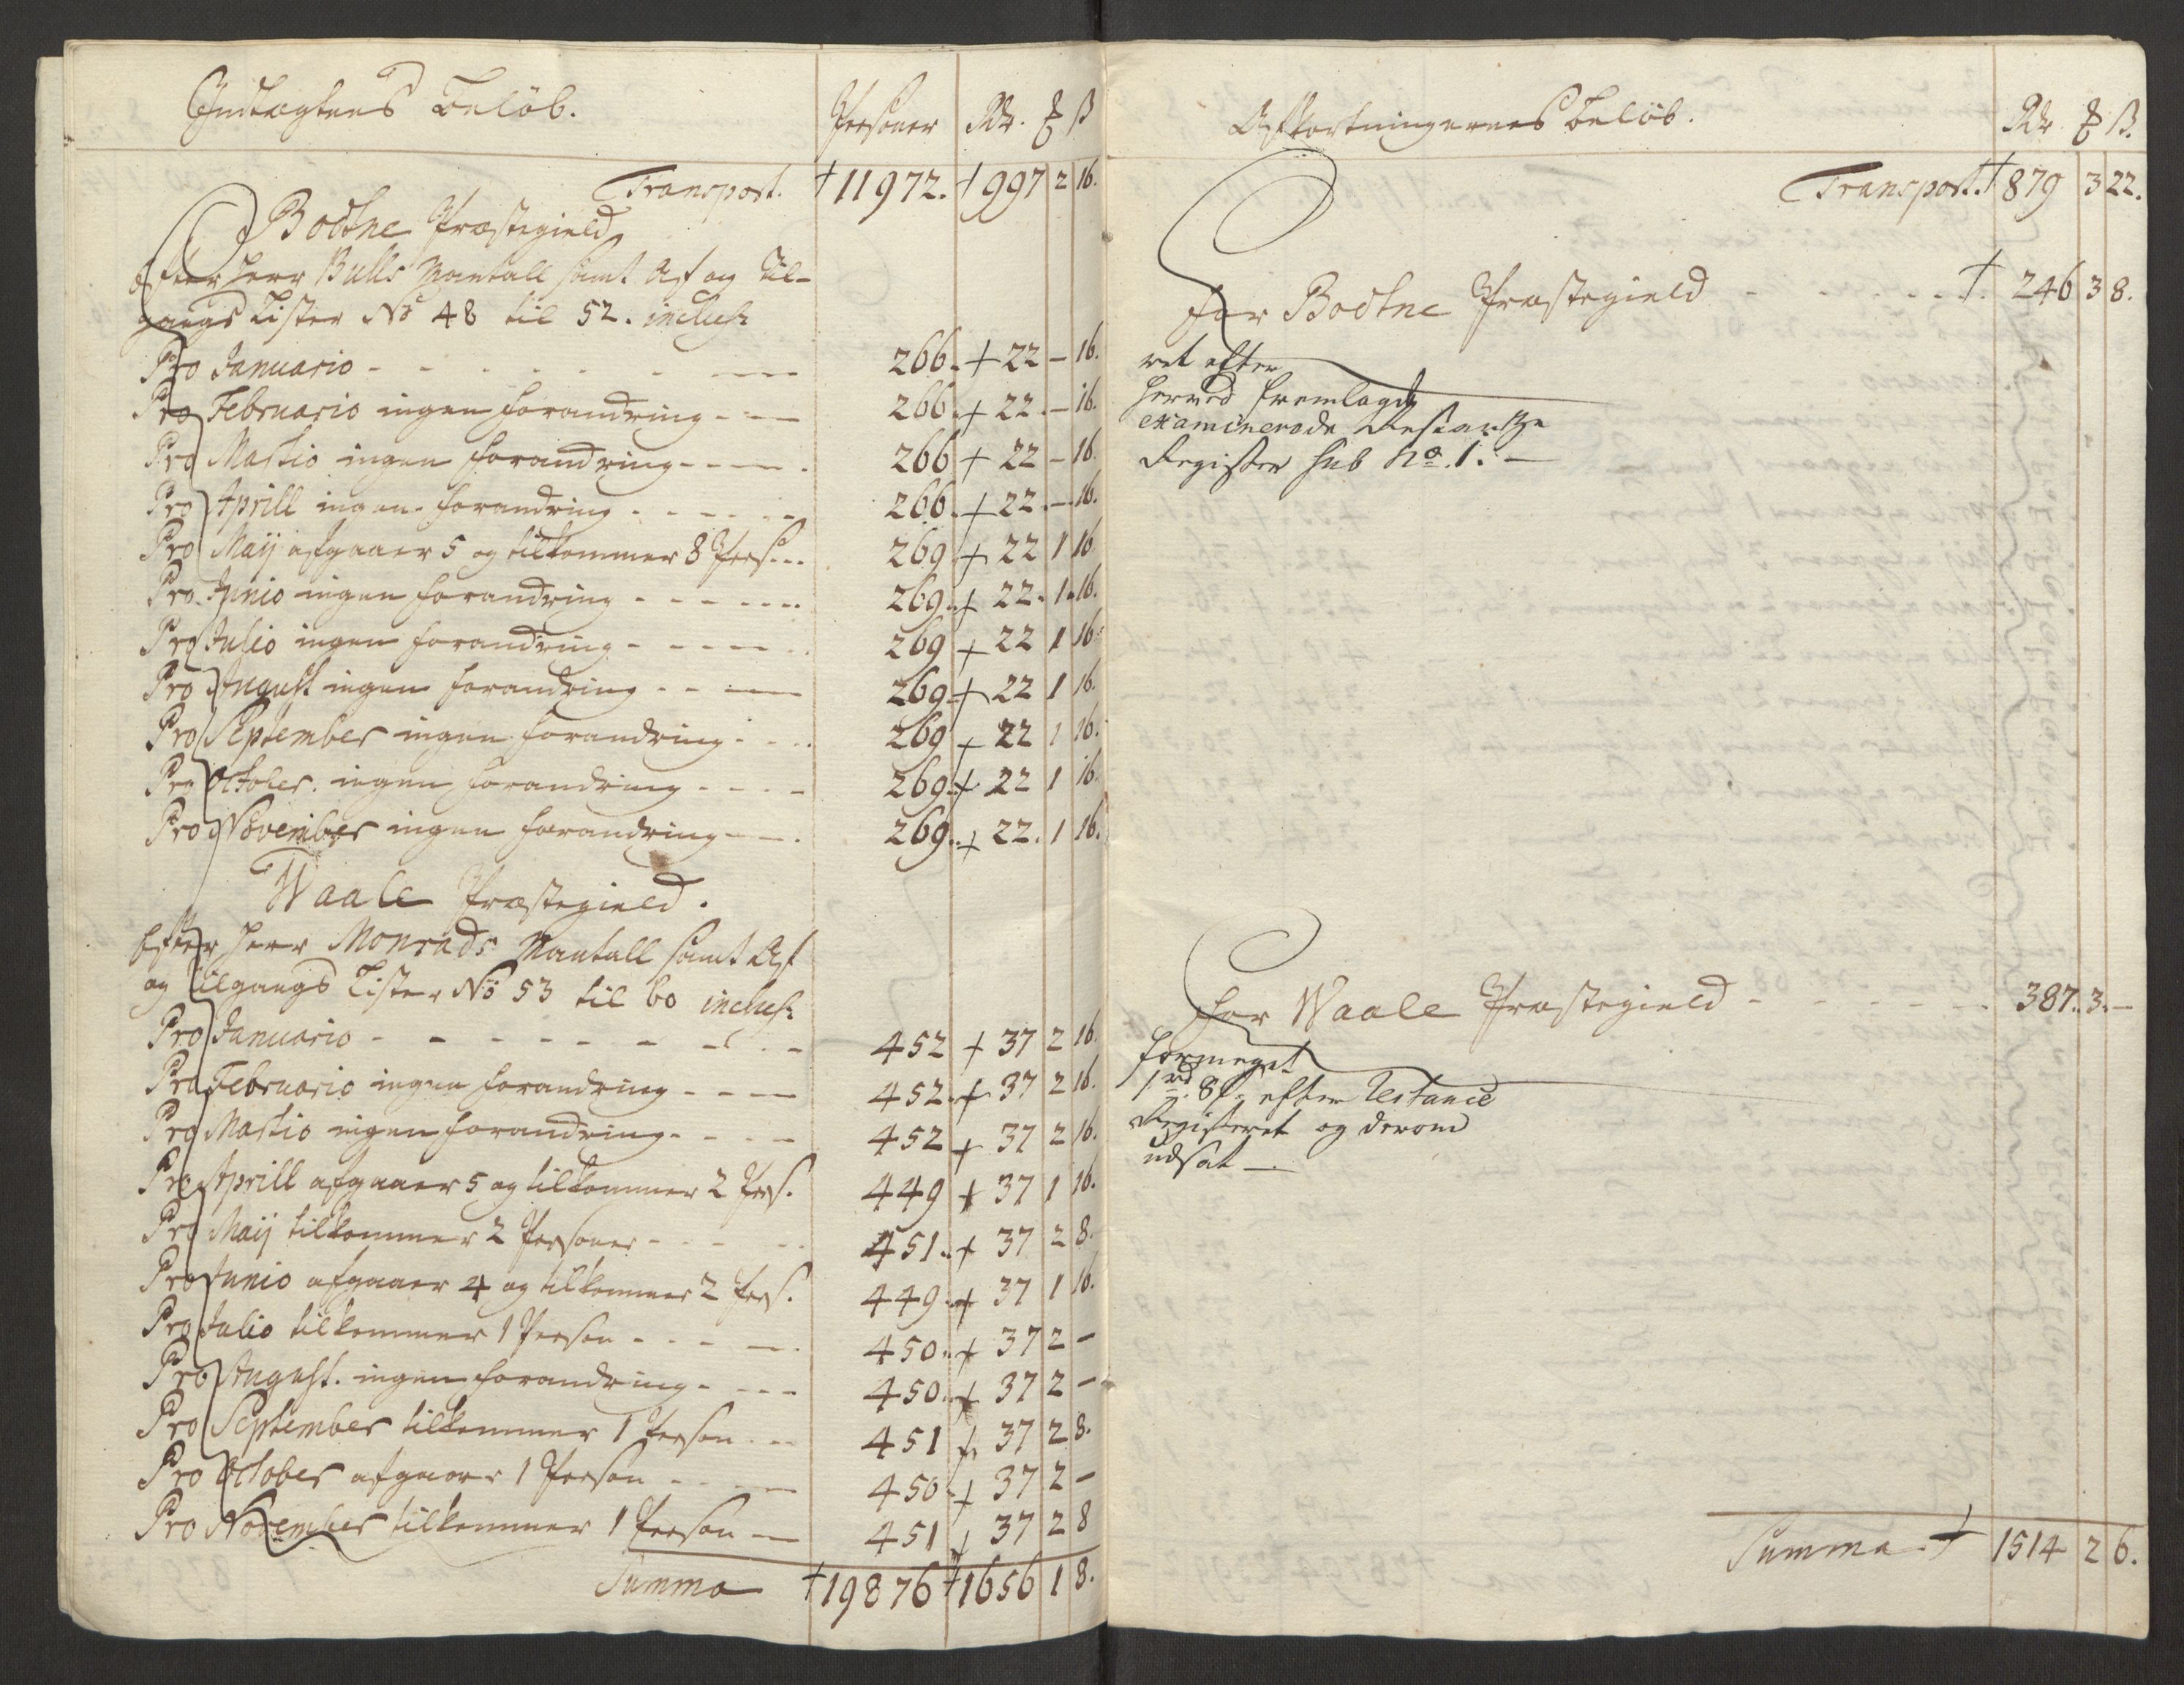 Indtægtens Beløb. Personer Rdr. ₰ ß
Transport. †11972. †997 2 16.
Bodsne Præstegield
Efter Herr Bulls Mantall samt Af og Til-
gangs Lister No 48 til 52. inclus:
Pro Januario - - - - - - 266. + 22 – 16.
Pro Februario ingen forandring - - - 266. + 22. – 16.
Pro Martio ingen forandring - - - - 266 + 22 – 16.
Pro Aprill ingen forandring - - - - - 266. + 22. – 16.
Pro Maij afgaaer 5 og tilkommer 8 Pers. - - 269 + 22 1 16
Pro Junio ingen forandring - - - - - 269. + 22. 1. 16.
Pro Julio ingen forandring - - - - - 269 + 22 1 16.
Pro August ingen forandring - - - - 269 + 22 1 16.
Pro September ingen forandring - - - 269 + 22 1 16.
Pro October. ingen forandring - - - - 269. + 22 1 16.
Pro November ingen forandring - - - 269. + 22. 1 16.
Waale Præstegield.
Efter Herr Monrads Mantall samt Af
og tilgangs Lister No 53 til 60 inclus:
Pro Januario - - - - - - - - 452 + 37 2 16.
Pro Februario ingen forandring - - - - 452. + 37 2 16.
Pro Martio ingen forandring - - - - 452 + 37 2 16.
Pro Aprill afgaaer 5 og tilkommer 2 Pers. 449 + 37 1 16.
Pro Maij tilkommer 2 Personer - - - - 451. + 37 2 8.
Pro Junio afgaaer 4 og tilkommer 2 Pers. 449. + 37 1 16.
Pro Julio tilkommer 1 Person - - - - 450. + 37 2 –
Pro August. ingen forandring - - - - 450. + 37 2 –
Pro September tilkommer 1 Person - - 451 + 37 2 8.
Pro October afgaaer 1 Person - - - - 450 + 37 2 –
Pro November tilkommer 1 Person – 451 + 37 2 8
Summa †19876 †1656 1 8.
Afkortningernes Beløb. Rdr ₰ ß.
Transport. † 879 3 22.
For Bodsne Præstegield - - - - - †. 246 3 8.
ret efter
herved fremlagde
examinerede Restantze
Register sub No. 1. –
For Waale Præstegield - - - - - - 387. 3. –
formeget
1 rd 8 ß. efter Restance
Registeret og derom
udsat –
Summa † 1514 2 6.